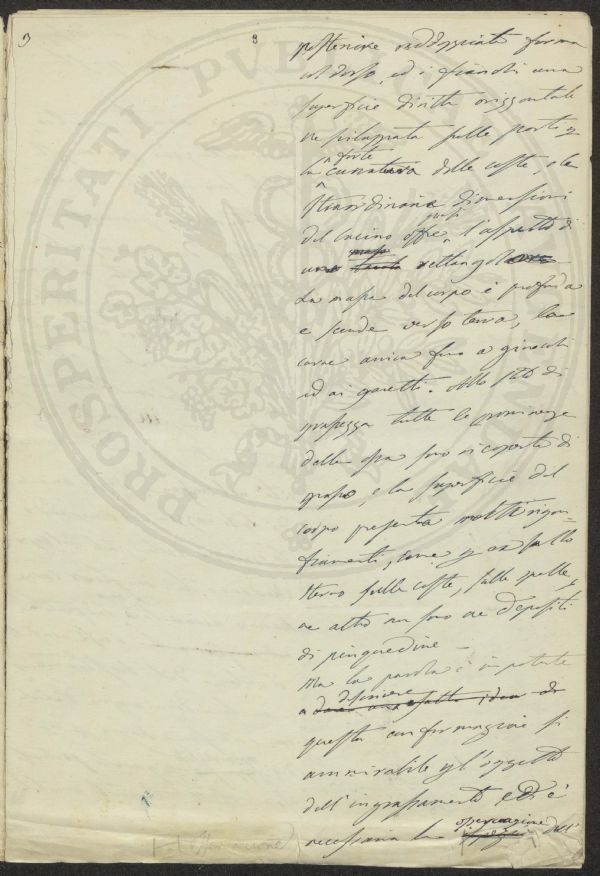 3
8
posteriore raddoppiata forma
col dorso, ed i fianchi una
superficie diritta orizzontale
sviluppata sulle parti
la forte
curvatura delle coste, e le
straordinarie dimensioni
del bacino offre quasi l'aspetto di
una massa rettangolare
La massa del corpo è profonda
e scende verso terra, la
carne arriva fino a ginocchi
ed ai garetti. Allo stato di
grassezza tutte le prominenze
delle ossa sono ricoperte di
grasso, e la superficie del
corpo presenta molti rigon-
fiamenti, come p. es. sullo
sterno sulle coste, sulle spalle,
ne altro non sono che depositi
di pinguedine —
Ma la parola è impotente
a descrivere
dare una esatta idea di
questa conformazione sì
ammirabile per l'oggetto
dell'ingrassamento ed è
necessaria la osservazione dell'
PROSPERITATI PUB
l'osservazione